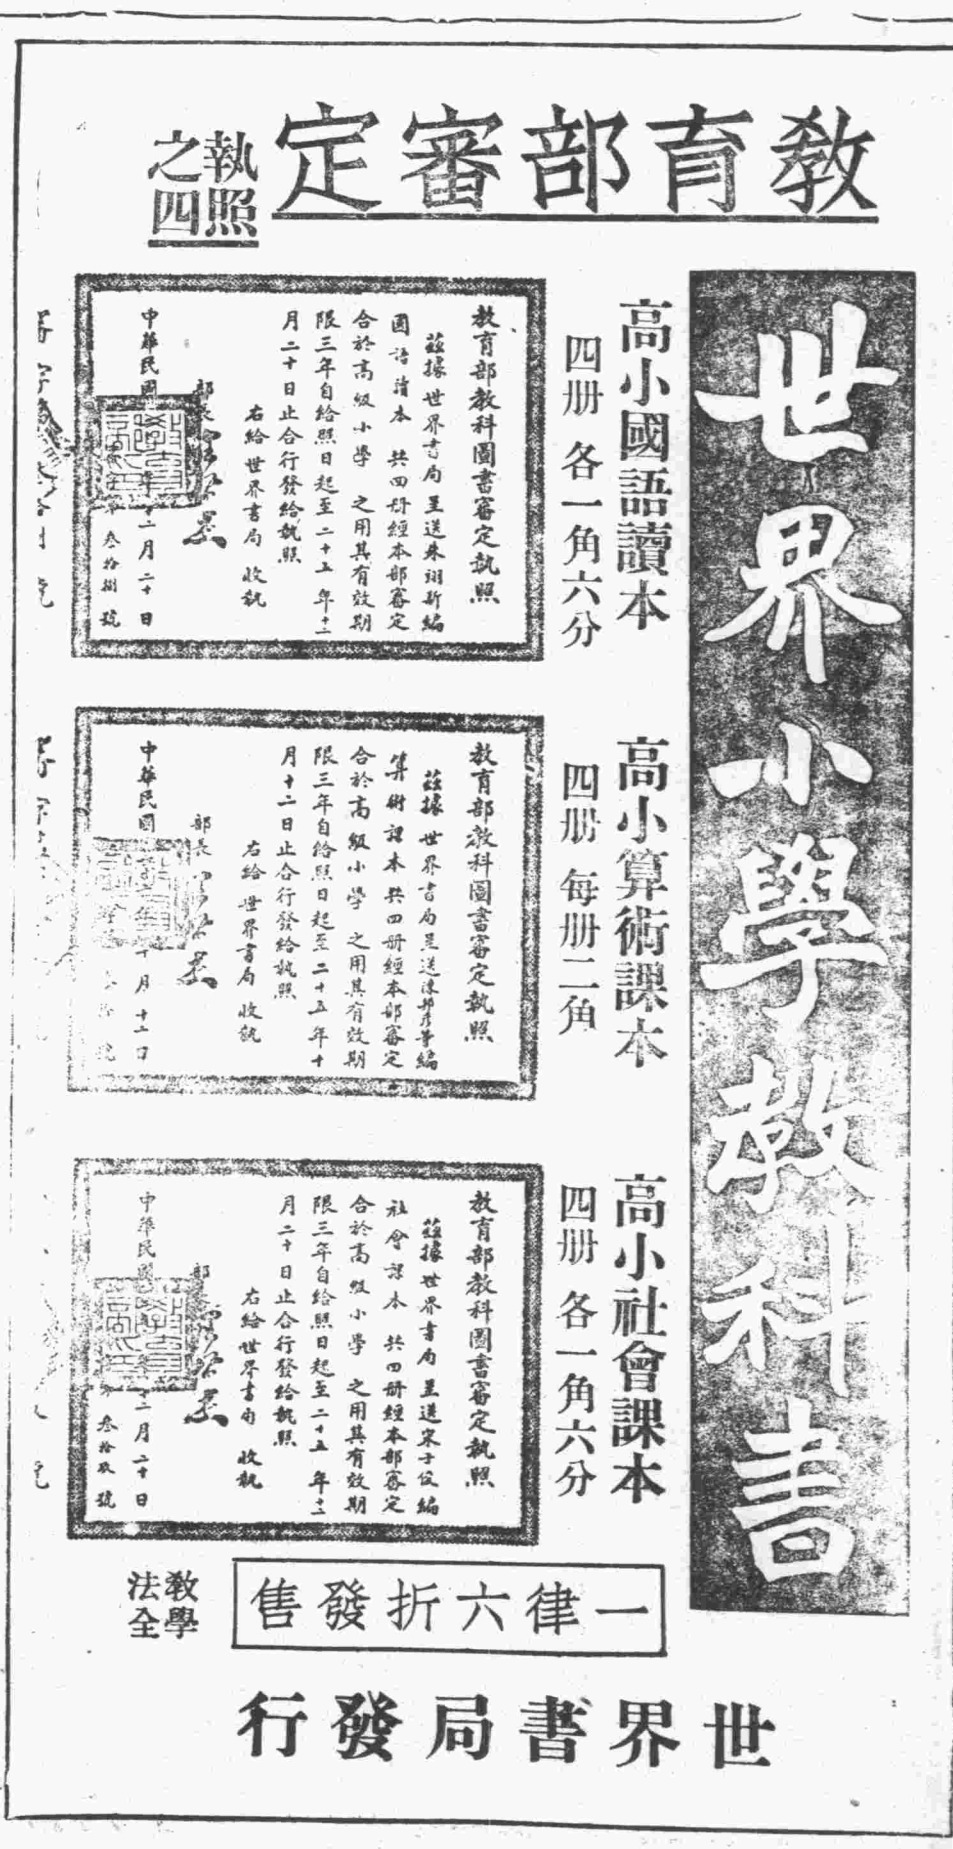 教育部審定
執照之四
世界小學教科書
高小國語讀本
四册 各一角六分
教育部教科圖書審定執照
茲據世界書局呈送朱翊新編
國語讀本 共四册經本部審定
合於高級小學 之用其有效期
限三年自給照日起至二十五年十二
月二十日止合行發給執照
右給世界書局 收執
部長
中華民國 二月二十日
叁拾捌 號
高小算術課本
四册 每册二角
教育部教科圖書審定執照
茲據世界書局呈送陳邦彥等編
算術課本共四册經本部審定
合於高級小學 之用其有效期
限三年自給照日起至二十五年十
月十二日止合行發給執照
右給世界書局 收執
部長
中華民國 十月十二日
號
高小社會課本
四册 各一角六分
教育部教科圖書審定執照
茲據世界書局呈送宋子俊編
社會課本 共四册經本部審定
合於高級小學 之用其有效期
限三年自給照日起至二十五年十二
月二十日止合行發給執照
右給世界書局 收執
部
中華民國 二月二十日
叁拾玖 號
一律六折發售
教學法全
世界書局發行